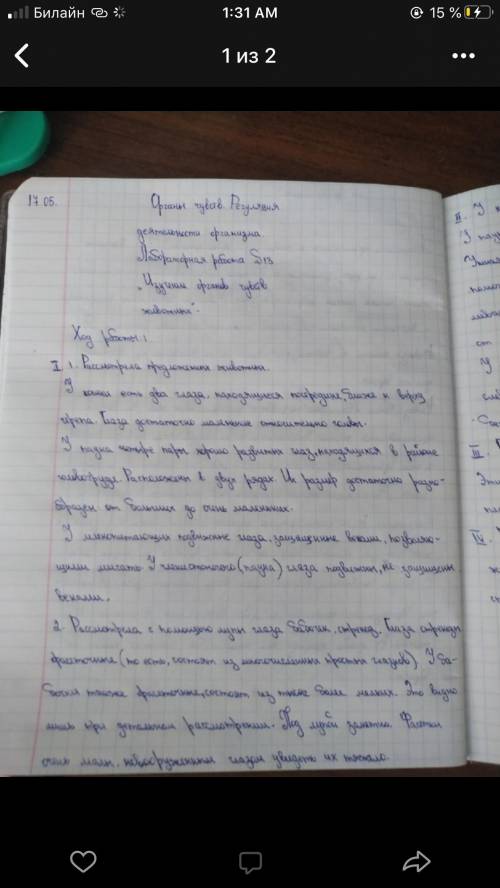 Билайн 1:31 AM 15 %
1 из 2
17.05. Органы чувств. Регуляция
деятельности организма.
Лабораторная работа №13
"Изучение органов чувств
животных".
Ход работы:
I. 1. Рассмотрела предложенных животных.
У кошки есть два глаза, находящиеся посередине, ближе к верху
черепа. Глаза достаточно маленькие относительно головы.
У паука четыре пары хорошо развитых глаз, находящихся в районе
головогруди. Расположены в двух рядах. Их размер достаточно разно-
образен от больших до очень маленьких.
У млекопитающих подвижные глаза, защищенные веками, позволяю-
щими мигать. У членистоногого (паука) глаза подвижны, не защищены
веками.
2. Рассмотрела с помощью лупы глаза бабочки, стрекоз. Глаза стрекозы
фасеточные (то есть, состоят из многочисленных простых глазков). У ба-
бочки также фасеточные, состоят из также более мелких. Это видно
лишь при детальном рассмотрении. Под лупой заметно. Фасетки
очень малы, невооруженным глазом увидеть их тяжело.
II.
У паук
от
У
III.
Эти
IV.